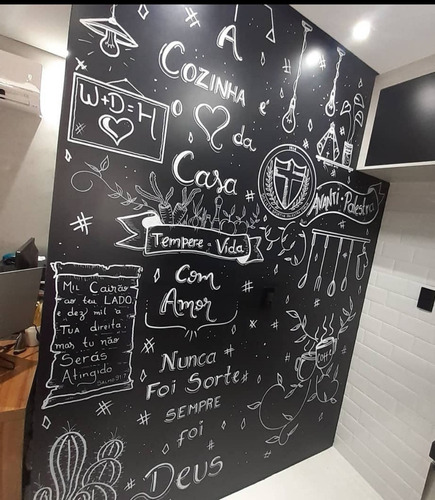 A
COZINHA
é
o ♡ da
Casa
W+D=H
AVANTI • Palestra
Tempere a Vida
Com
Amor
Mil Cairão
ao teu LADO,
e dez mil à
TUA direita,
mas tu não
Serás
Atingido
SALMO 91:7
Nunca
Foi Sorte
SEMPRE
foi
Deus